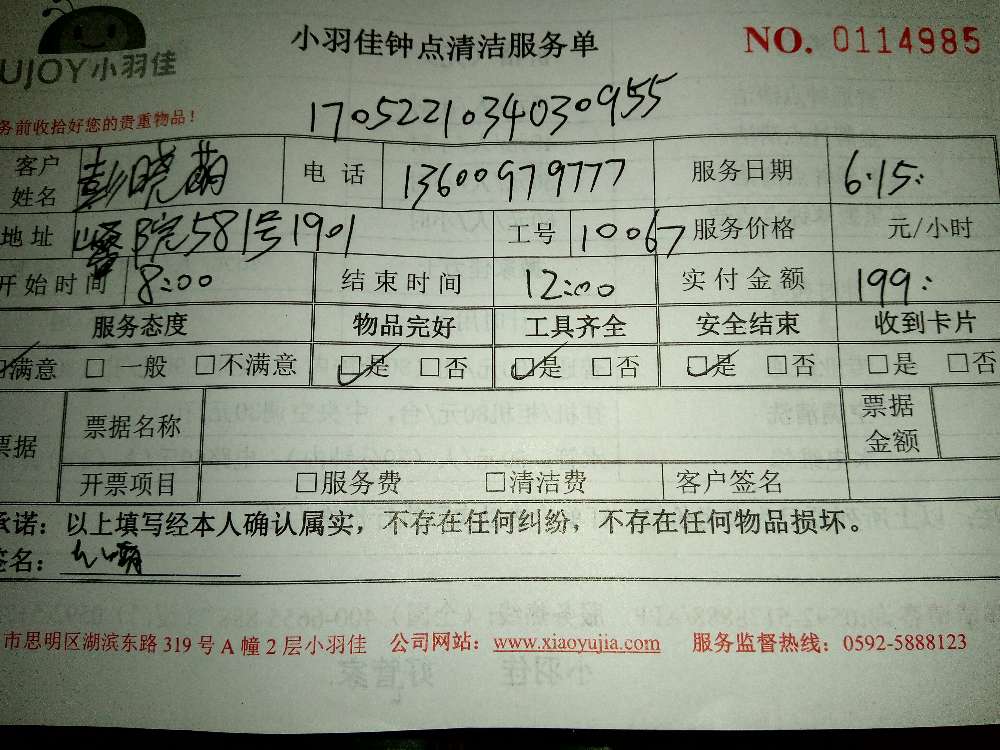 UJOY小羽佳
小羽佳钟点清洁服务单
NO. 0114985
务前收拾好您的贵重物品！
1705221034030955
客户姓名 彭晓萌 电话 13600979777 服务日期 6.15.
地址 院581号1901 工号 10067 服务价格 元/小时
开始时间 8:00 结束时间 12:00 实付金额 199.
服务态度 物品完好 工具齐全 安全结束 收到卡片
☑满意 □ 一般 □不满意 ☑是 □否 ☑是 □否 ☑是 □否 □是 □否
票据 票据名称 票据金额
开票项目 □服务费 □清洁费 客户签名
承诺：以上填写经本人确认属实，不存在任何纠纷，不存在任何物品损坏。
签名：
市思明区湖滨东路 319 号 A 幢 2 层小羽佳 公司网站：www.xiaoyujia.com 服务监督热线：0592-5888123